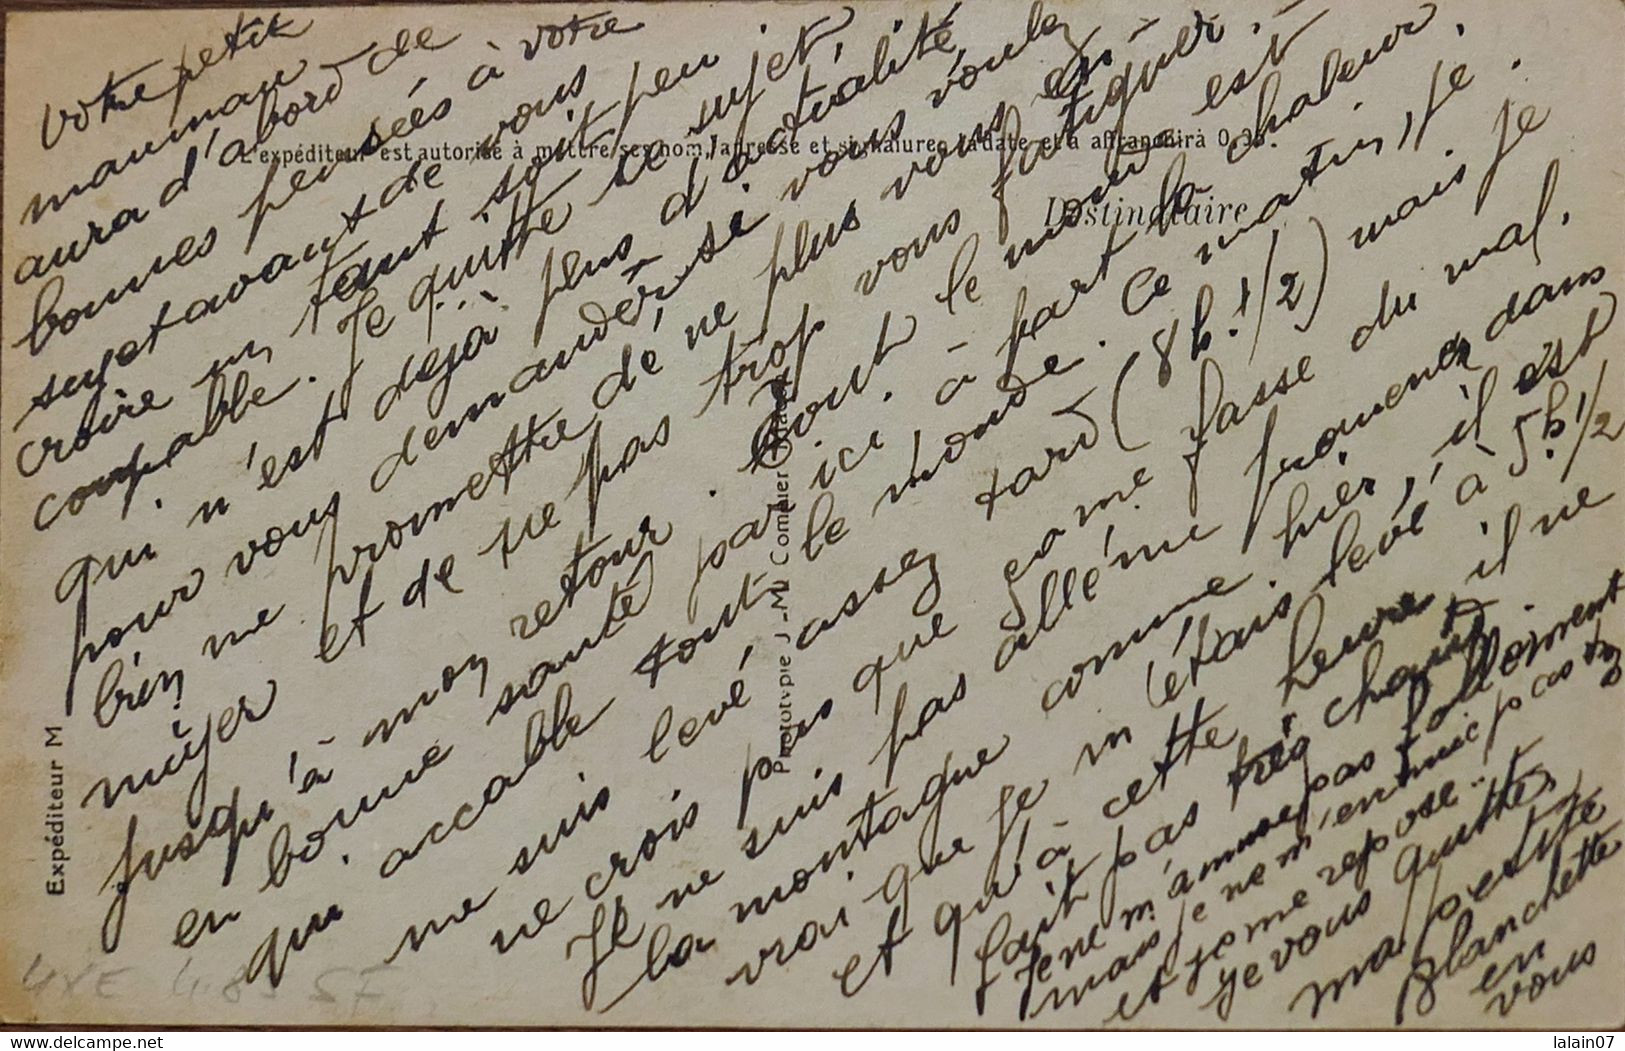 votre petite
maman
aura d'abord de
bonnes pensées à votre
sujet avant de vous
croire un tant soit peu
coupable. Je quitte ce sujet,
qui n'est déjà plus d'actualité
pour vous demander si vous voulez
bien me promettre de ne plus vous en-
nuyer et de ne pas trop vous fatiguer
jusqu'à mon retour. Tout le monde est
en bonne santé par ici. à part la chaleur,
qui accable tout le monde. Ce matin, je
me suis levé assez tard (8h. 1/2) mais je
ne crois pas que ça me fasse du mal.
Je ne suis pas allé me promener dans
la montagne comme hier, il est
vrai que je m'étais levé à 5h 1/2
et qu'à cette heure, il ne
fait pas très chaud
Je ne m'amuse pas follement
mais je ne m'ennuie pas
et je me repose..
Je vous quitte,
ma petite
Blanchette
en
vous
L'expéditeur est autorisé à mettre ses nom, adresse et signature, la date et à affranchir à 0,
Destinataire
Expéditeur M
Phototypie J.-M. Combier
lalain07